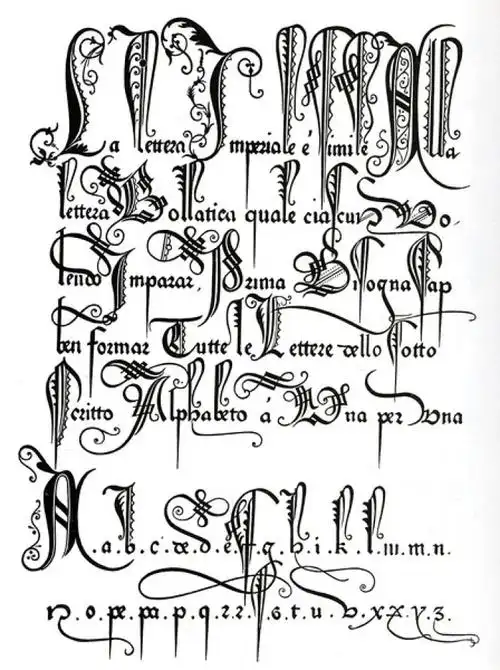 La lettera Imperiale é simile Alla
lettera Bollatica quale ciascun Vo.
lendo Imparar, Prima Bisogna sap
ben formar Tutte le Lettere dello sotto
scritto Alphabeto á Una per Una
A.a.b.c.de.d.e.f.g.h.i.k.l.m.m.n.
n.o.pe.pa.p.q.r.r.s.t.u.v.x.x.y.z.